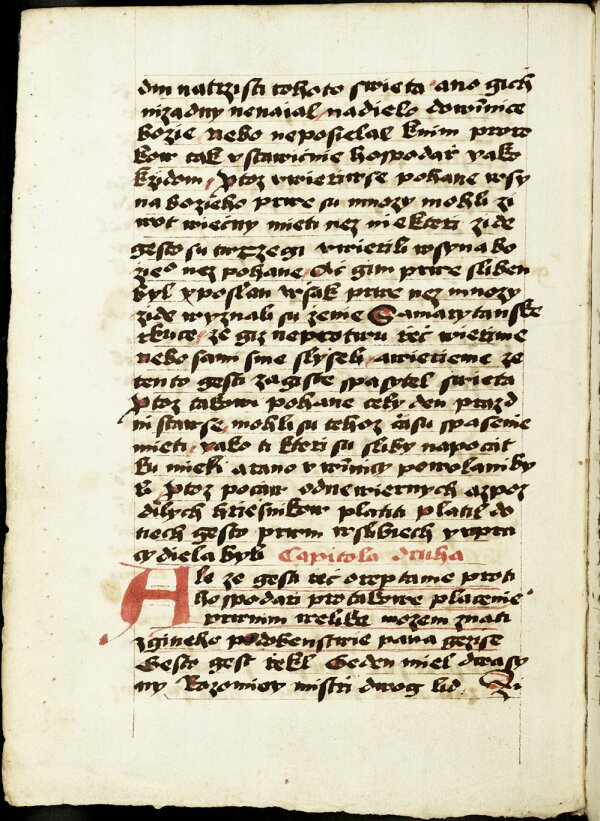 din na trzisti tohoto swieta ano gich
nizadny nenaial na dielo do winnice
bozie nebo neposielal knim proro
kow tak vstawicnie hospodar yako
kzidom Protoz vwieriwse pohane wsy
na bozieho prwe su mnozy mohli zi
wot wiecny mieti nez niekteri zide
gesto su twrzegi vwierili wsyna bo
zieo nez pohane Ac gim prwe sliben
byl y poslan wsak prwe nez mnozy
zide wyznali su zenie Samarytanske
rkuce ze giz ne protwu rec wierime
nebo sami sme slyseli a wierieme ze
tento gest zagiste spasytel swieta
Protoz takowi pohane cely den prazd
ni stawse mohli su tehoz casu spasenie
mieti yako ti kteri su sliby napocat
ku mieli a rano v winnicy powolani by
li Protoz pocaw od newiernych a z poz
dilych hriesnikow platiti platil do
tiech gesto prwni w slibiech y w pra
cy diela byli Capitola druha
Ale ze gest rec o reptanie proti
hospodari pro takowe placenie
prwnim welike mozem znati
z gineho podobenstwie pana gezise
Gesto gest rekl Geden miel dwa sy
ny Rozomiey mistri dwog lid